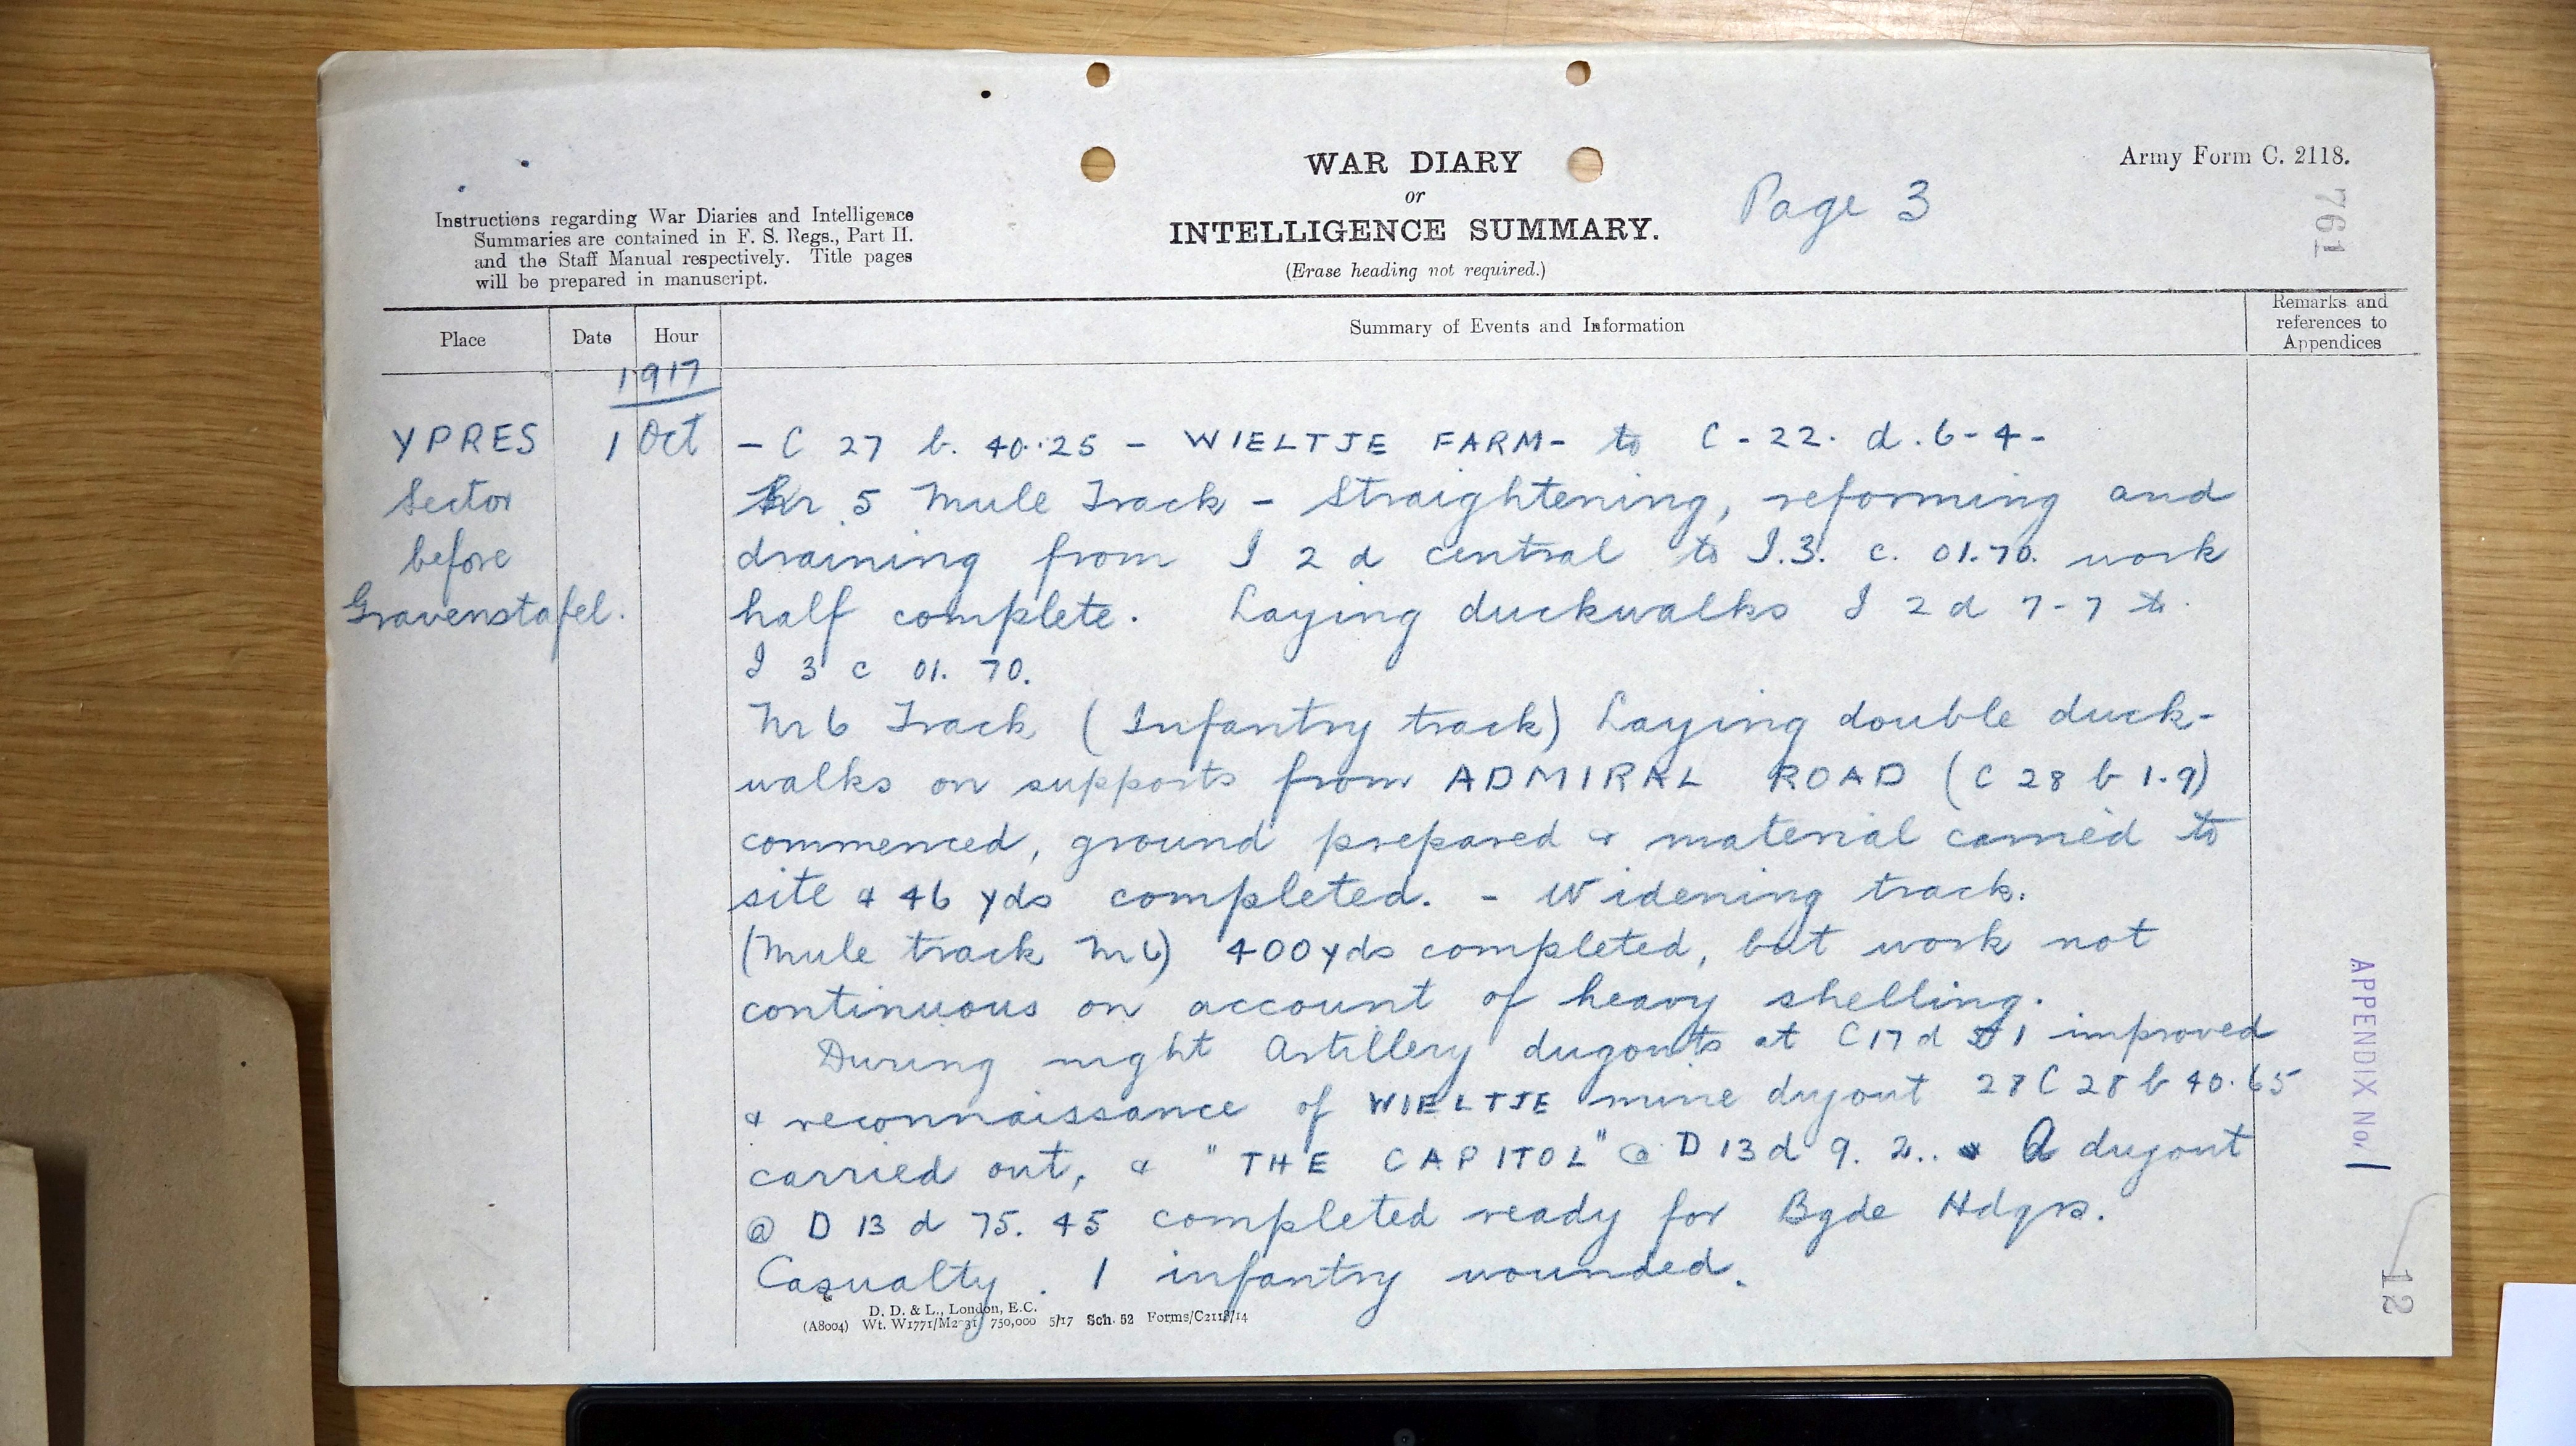 Army Form C. 2118.
WAR DIARY
or
INTELLIGENCE SUMMARY.
(Erase heading not required.)
Page 3
761
Instructions regarding War Diaries and Intelligence
Summaries are contained in F. S. Regs., Part II.
and the Staff Manual respectively. Title pages
will be prepared in manuscript.
Place
Date
Hour
Summary of Events and Information
Remarks and
references to
Appendices
1917
YPRES
Sector
before
Gravenstafel.
1 Oct
- C 27 b. 40.25 - WIELTJE FARM - to C - 22. d. 6-4-
Nr 5 Mule Track - Straightening, reforming and
draining from I 2 d central to I.3. c. 01.70. work
half complete. Laying duckwalks I 2 d 7-7 to
I 3 c 01. 70.
Nr 6 Track (Infantry track) Laying double duck-
walks on supports from ADMIRAL ROAD (C 28 b 1.9)
commenced, ground prepared & material carried to
site & 46 yds completed. - Widening track.
(Mule track Nr 6) 400 yds completed, but work not
continuous on account of heavy shelling.
During night Artillery dugouts at C 17 d 1 improved
& reconnaissance of WIELTJE mine dugout 28 C 28 b 40.65
carried out, & "THE CAPITOL" @ D 13 d 9. 2.. A dugout
@ D 13 d 75. 45 completed ready for Bgde Hdqrs.
Casualty. 1 infantry wounded.
APPENDIX No. 1
12
D. D. & L., London, E.C.
(A8004) Wt. W1771/M2-31 750,000 5/17 Sch. 52 Forms/C2118/14